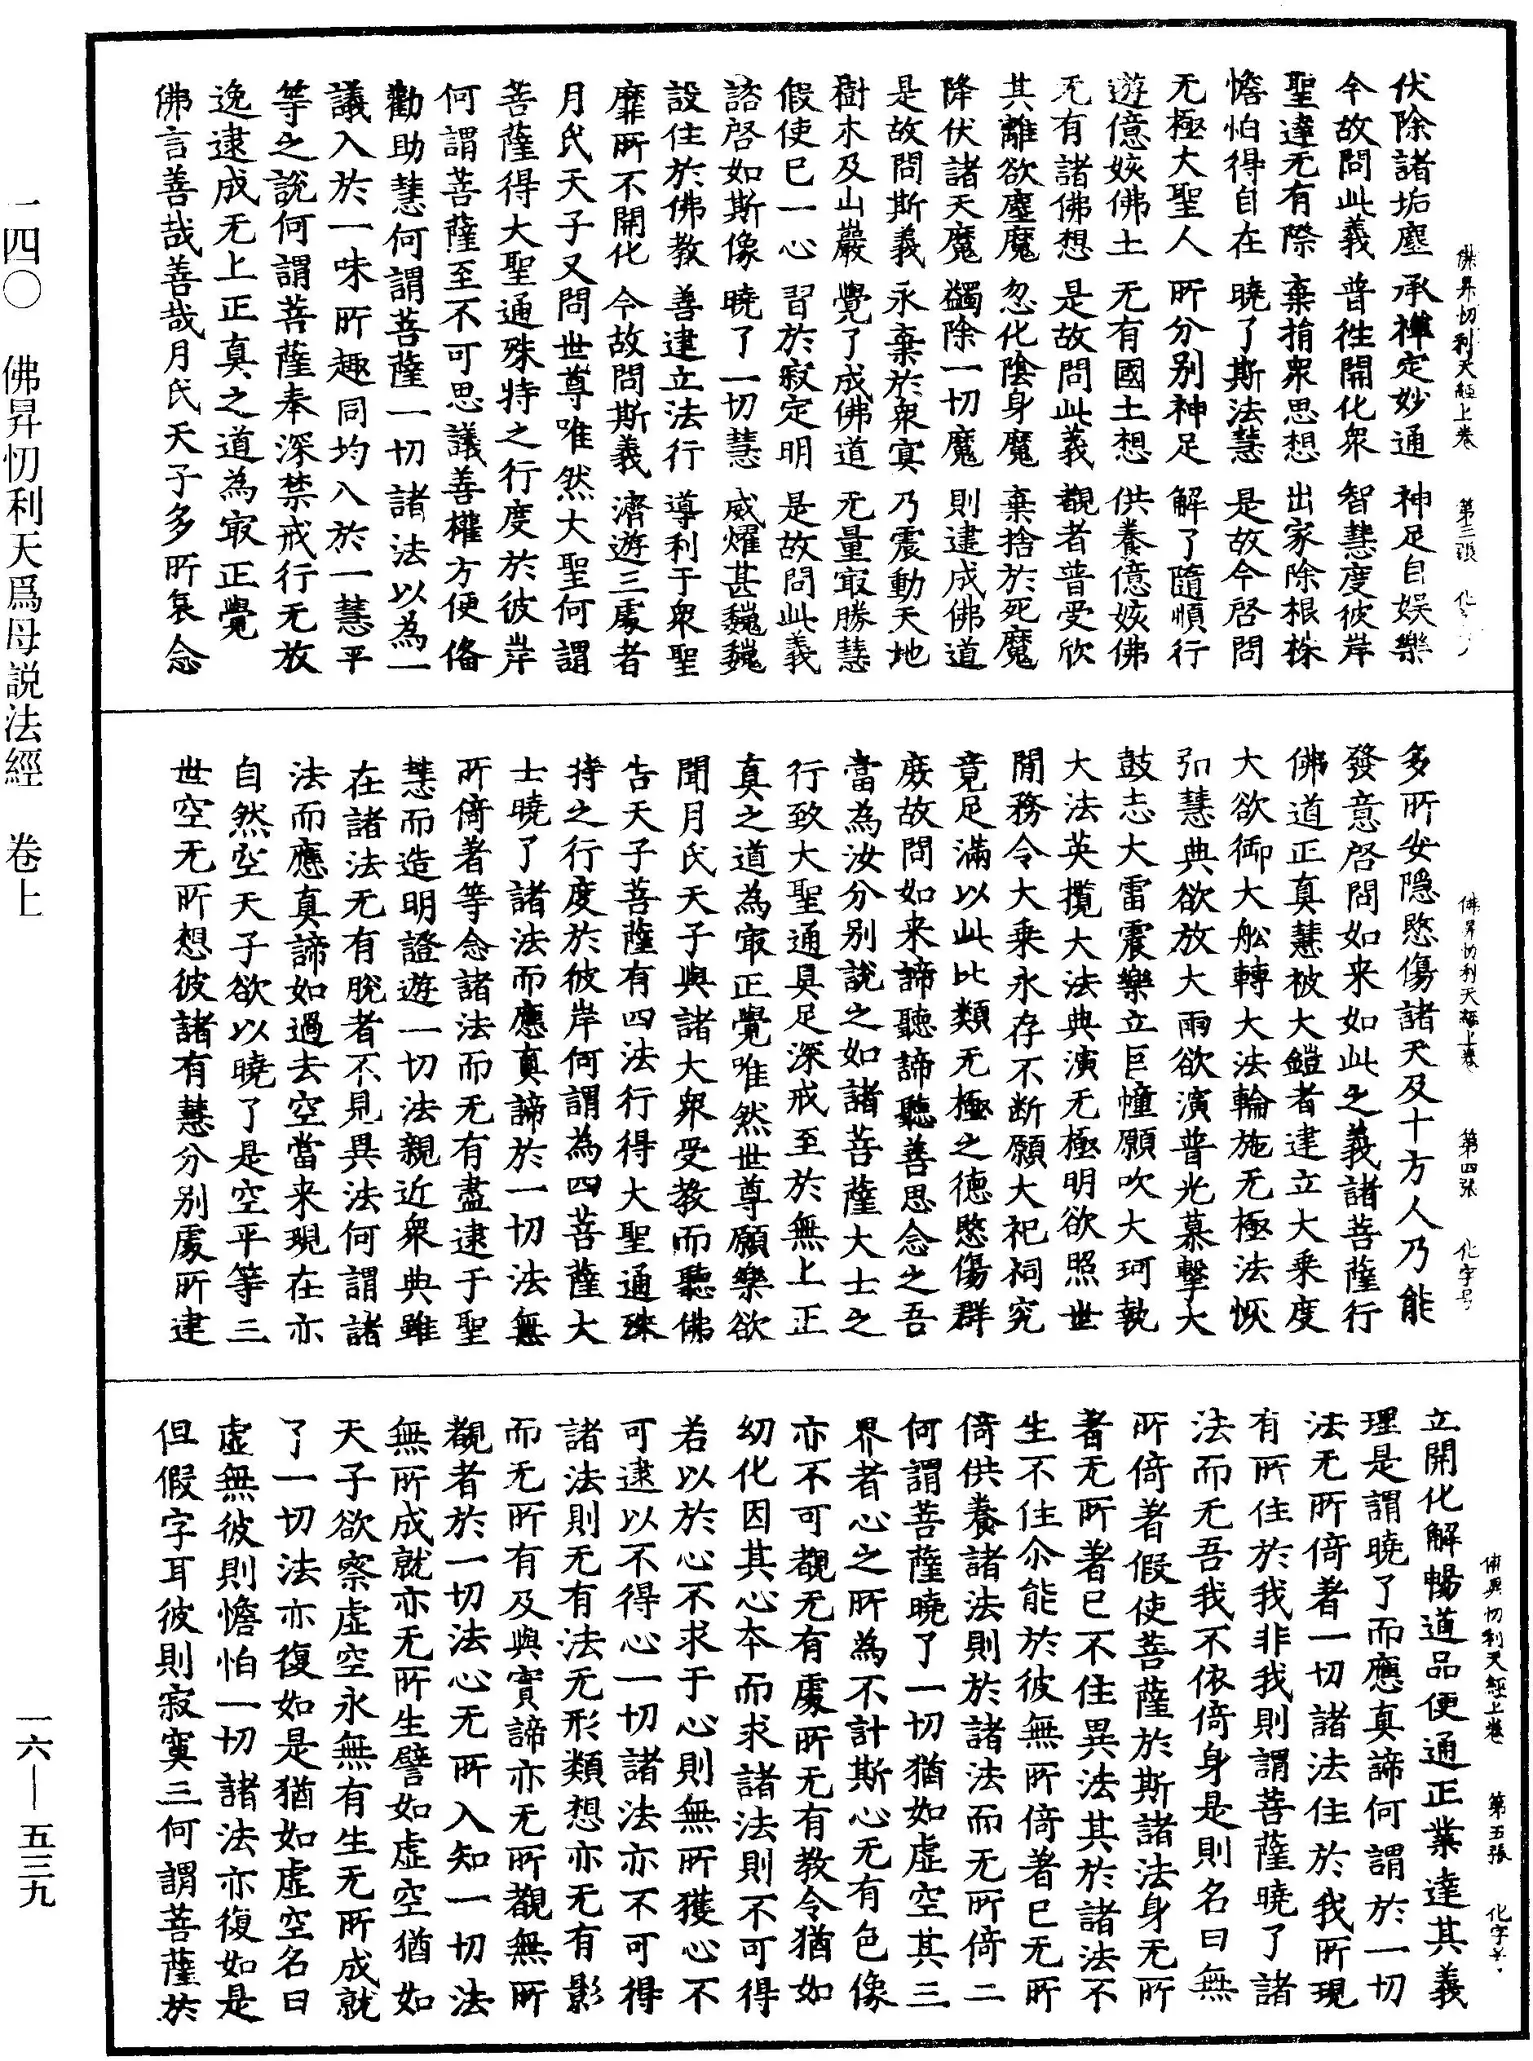 佛昇忉利天經上卷 第三張 化
伏除諸垢塵 承禪定妙通 神足自娛樂
今故問此義 普往開化衆 智慧度彼岸
聖達无有際 棄捐衆思想 出家除根株
憺怕得自在 曉了斯法慧 是故今啓問
无極大聖人 所分别神足 解了隨順行
遊億姟佛土 无有國土想 供養億姟佛
无有諸佛想 是故問此義 觀者普受欣
其離欲塵魔 忽化陰身魔 棄捨於死魔
降伏諸天魔 蠲除一切魔 則逮成佛道
是故問斯義 永棄於衆冥 乃震動天地
樹木及山巖 覺了成佛道 无量㝡勝慧
假使巳一心 習於寂定明 是故問此義
諮啓如斯像 曉了一切慧 威燿甚巍巍
設住於佛教 善建立法行 導利于衆聖
靡所不開化 今故問斯義 濟遊三處者
月氏天子又問世尊唯然大聖何謂
菩薩得大聖通殊特之行度於彼岸
何謂菩薩至不可思議善權方便俻
勸助慧何謂菩薩一切諸法以為一
議入於一味所趣同均入於一慧平
等之說何謂菩薩奉深禁戒行无放
逸逮成无上正真之道為㝡正覺
佛言善哉善哉月氏天子多所哀念
佛昇忉利天經上卷 第四張 化字号
多所安隠愍傷諸天及十方人乃能
發意啓問如来如此之義諸菩薩行
佛道正真慧被大鎧者建立大乘度
大欲御大舩轉大法輪施无極法恢
弘慧典欲放大雨欲演普光慕擊大
鼓志大雷震樂立巨幢願吹大珂執
大法英攬大法典演无極明欲照世
閒務令大乘永存不断願大祀祠究
竟足滿以此比類无極之德愍傷群
𠪨故問如来諦聽諦聽善思念之吾
當為汝分别說之如諸菩薩大士之
行致大聖通具足深戒至於無上正
真之道為㝡正覺唯然世尊願樂欲
聞月氏天子與諸大衆受教而聽佛
告天子菩薩有四法行得大聖通殊
持之行度於彼岸何謂為四菩薩大
士曉了諸法而應真諦於一切法無
所倚者等念諸法而无有盡逮于聖
慧而造明證遊一切法親近衆典雖
在諸法无有脫者不見異法何謂諸
法而應真諦如過去空當来現在亦
自然空天子欲以曉了是空平等三
世空无所想彼諸有慧分别處所建
佛昇忉利天經上卷 第五張 化字号
立開化解暢道品便通正業達其義
理是謂曉了而應真諦何謂於一切
法无所倚者一切諸法住於我所現
有所住於我非我則謂菩薩曉了諸
法而无吾我不依倚身是則名曰無
所倚者假使菩薩於斯諸法身无所
著无所著已不住異法其於諸法不
生不住尒能於彼無所倚著已无所
倚供養諸法則於諸法而无所倚二
何謂菩薩曉了一切猶如虛空其三
界者心之所為不計斯心无有色像
亦不可覩无有處所无有教令猶如
幻化因其心本而求諸法則不可得
若以於心不求于心則無所獲心不
可逮以不得心一切諸法亦不可得
諸法則无有法无形類想亦无有影
而无所有及與實諦亦无所覩無所
覩者於一切法心无所入知一切法
無所成就亦无所生譬如虛空猶如
天子欲察虛空永無有生无所成就
了一切法亦復如是猶如虛空名曰
虛無彼則憺怕一切諸法亦復如是
但假字耳彼則寂寞三何謂菩薩於
一四〇 佛昇忉利天爲母説法經 卷上
一六—五三九